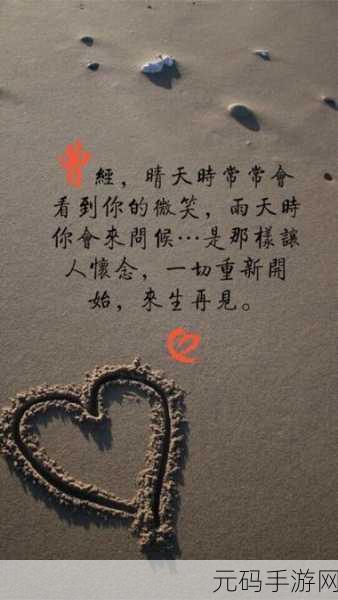 曾經，晴天時常常會
看到你的微笑，雨天時
你會來問候…是那樣讓
人懷念，一切重新開
始，來生再見。
元码手游网